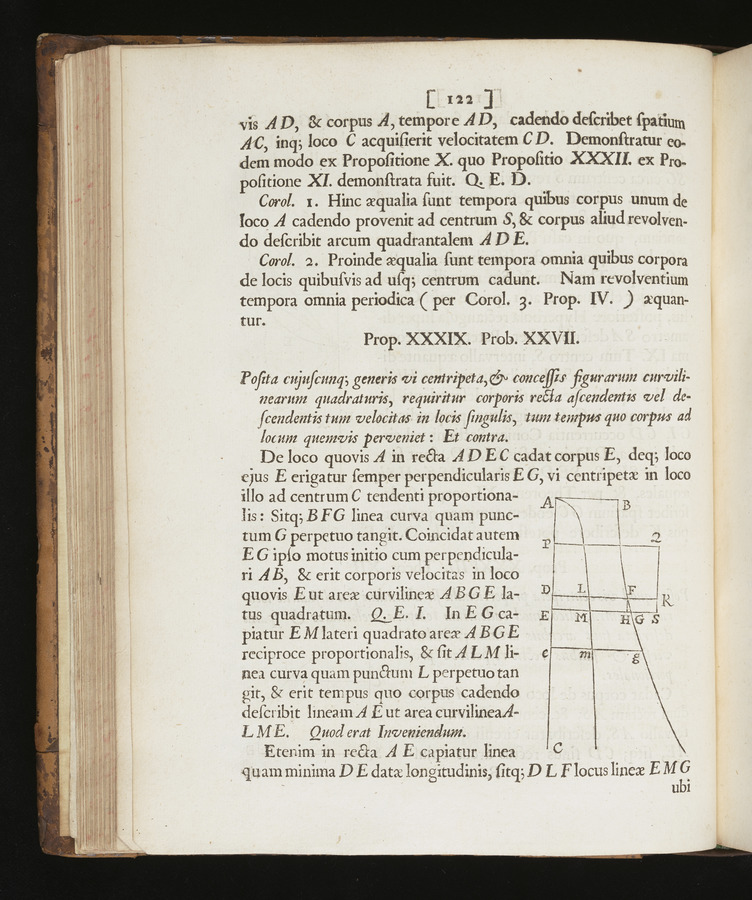 [ 122 ]
vis A D, & corpus A, tempore A D, cadendo deſcribet ſpatium
A C, inq; loco C acquiſierit velocitatem C D. Demonſtratur eo-
dem modo ex Propoſitione X. quo Propoſitio XXXII. ex Pro-
poſitione XI. demonſtrata fuit. Q. E. D.
Corol. 1. Hinc æqualia ſunt tempora quibus corpus unum de
loco A cadendo provenit ad centrum S, & corpus aliud revolven-
do deſcribit arcum quadrantalem A D E.
Corol. 2. Proinde æqualia ſunt tempora omnia quibus corpora
de locis quibuſvis ad uſq; centrum cadunt. Nam revolventium
tempora omnia periodica ( per Corol. 3. Prop. IV. ) æquan-
tur.
Prop. XXXIX. Prob. XXVII.
Poſita cujuſcunq; generis vi centripeta, & conceſſis figurarum curvili-
nearum quadraturis, requiritur corporis recta aſcendentis vel de-
ſcendentis tum velocitas in locis ſingulis, tum tempus quo corpus ad
locum quemvis perveniet : Et contra.
De loco quovis A in recta A D E C cadat corpus E, deq; loco
ejus E erigatur ſemper perpendicularis E G, vi centripetæ in loco
illo ad centrum C tendenti proportiona-
lis : Sitq; B F G linea curva quam punc-
tum G perpetuo tangit. Coincidat autem
E G ipſo motus initio cum perpendicula-
ri A B, & erit corporis velocitas in loco
quovis E ut areæ curvilineæ A B G E la-
tus quadratum. Q. E. I. In E G ca-
piatur E M lateri quadrato areæ A B G E
reciproce proportionalis, & ſit A L M li-
nea curva quam punctum L perpetuo tan
git, & erit tempus quo corpus cadendo
deſcribit lineam A E ut area curvilinea A-
L M E. Quod erat Inveniendum.
Etenim in recta A E capiatur linea
quam minima D E datæ longitudinis, ſitq; D L F locus lineæ E M G
ubi
A B
P Q
D L F R
E M H G S
e m g
C